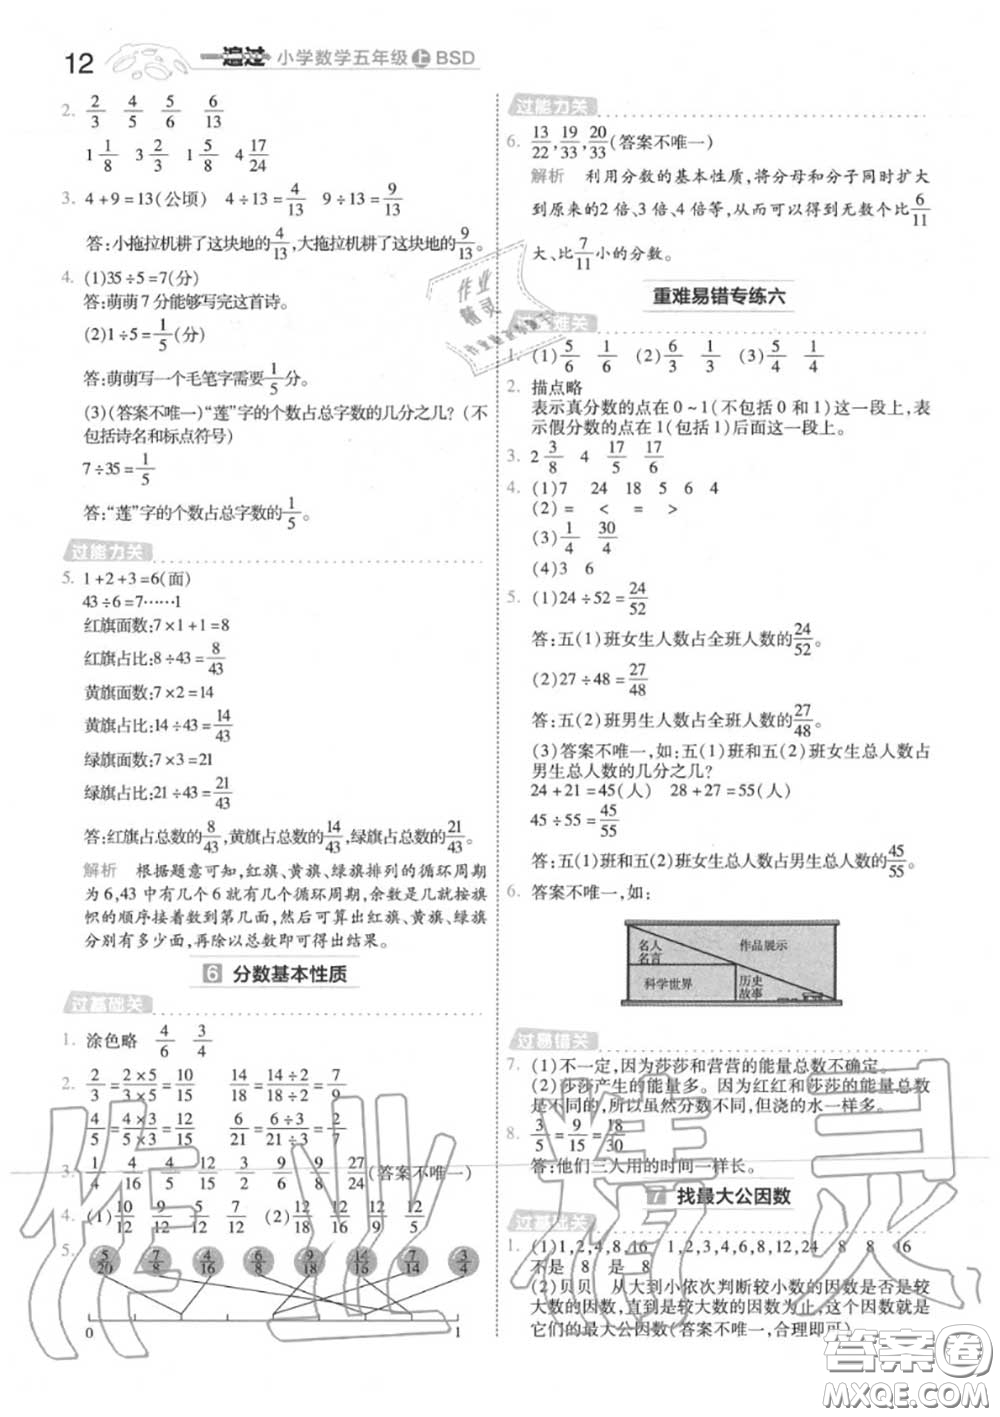 12 一遍过 小学数学五年级 上 BSD
2. 2/3 4/5 5/6 6/13
1 1/8 3 2/3 1 5/8 4 17/24
3. 4+9=13(公顷) 4÷13=4/13 9÷13=9/13
答:小拖拉机耕了这块地的4/13,大拖拉机耕了这块地的9/13。
4. (1)35÷5=7(分)
答:萌萌7分能够写完这首诗。
(2)1÷5=1/5(分)
答:萌萌写一个毛笔字需要1/5分。
(3)(答案不唯一)“莲”字的个数占总字数的几分之几?(不
包括诗名和标点符号)
7÷35=1/5
答:“莲”字的个数占总字数的1/5。
过能力关
5. 1+2+3=6(面)
43÷6=7……1
红旗面数:7×1+1=8
红旗占比:8÷43=8/43
黄旗面数:7×2=14
黄旗占比:14÷43=14/43
绿旗面数:7×3=21
绿旗占比:21÷43=21/43
答:红旗占总数的8/43,黄旗占总数的14/43,绿旗占总数的21/43。
解析 根据题意可知,红旗、黄旗、绿旗排列的循环周期
为6,43中有几个6就有几个循环周期,余数是几就按旗
帜的顺序接着数到第几面,然后可算出红旗、黄旗、绿旗
分别有多少面,再除以总数即可得出结果。
6 分数基本性质
过基础关
1. 涂色略 4/6 3/4
2. 2/3=2×5/3×5=10/15 14/18=14÷2/18÷2=7/9
4/5=4×3/5×3=12/15 6/21=6÷3/21÷3=2/7
3. 1/4 4/16 4/5 12/15 3/4 6/8 9/9 27/24(答案不唯一)
4. (1)10/12 9/12 5/12 7/12 (2)12/18 12/16 12/15 12/9
5. 5/20 7/8 4/16 6/8 9/18 4/16 7/14 3/4
0 1
过能力关
6. 13/22,19/33,20/33(答案不唯一)
解析 利用分数的基本性质,将分母和分子同时扩大
到原来的2倍、3倍、4倍等,从而可以得到无数个比6/11
大、比7/11小的分数。
重难易错专练六
过重难关
1. (1)5/6 1/6 (2)6/3 1/3 (3)5/4 1/4
2. 描点略
表示真分数的点在0~1(不包括0和1)这一段上,表
示假分数的点在1(包括1)后面这一段上。
3. 2 3/8 4 17/5 17/6
4. (1)7 24 18 5 6 4
(2)= < = >
(3)1/4 30/4
(4)3 6
5. (1)24÷52=24/52
答:五(1)班女生人数占全班人数的24/52。
(2)27÷48=27/48
答:五(2)班男生人数占全班人数的27/48。
(3)答案不唯一,如:五(1)班和五(2)班女生总人数占
男生总人数的几分之几?
24+21=45(人) 28+27=55(人)
45÷55=45/55
答:五(1)班和五(2)班女生总人数占男生总人数的45/55。
6. 答案不唯一,如:
名人名言 作品展示
科学世界 历史故事
过易错关
7. (1)不一定,因为莎莎和营营的能量总数不确定。
(2)莎莎产生的能量多。因为红红和莎莎的能量总数
是不同的,所以虽然分数不同,但浇的水一样多。
8. 3/5=9/15=18/30
答:他们三人用的时间一样长。
7 找最大公因数
过基础关
1. (1)1,2,4,8,16 1,2,3,4,6,8,12,24 8 8 16
不是 8 是 8
(2)贝贝 从大到小依次判断较小数的因数是否是较
大数的因数,直到是较大数的因数为止,这个因数就是
它们的最大公因数(答案不唯一,合理即可)
作业精灵
答案圈
MXQE.COM